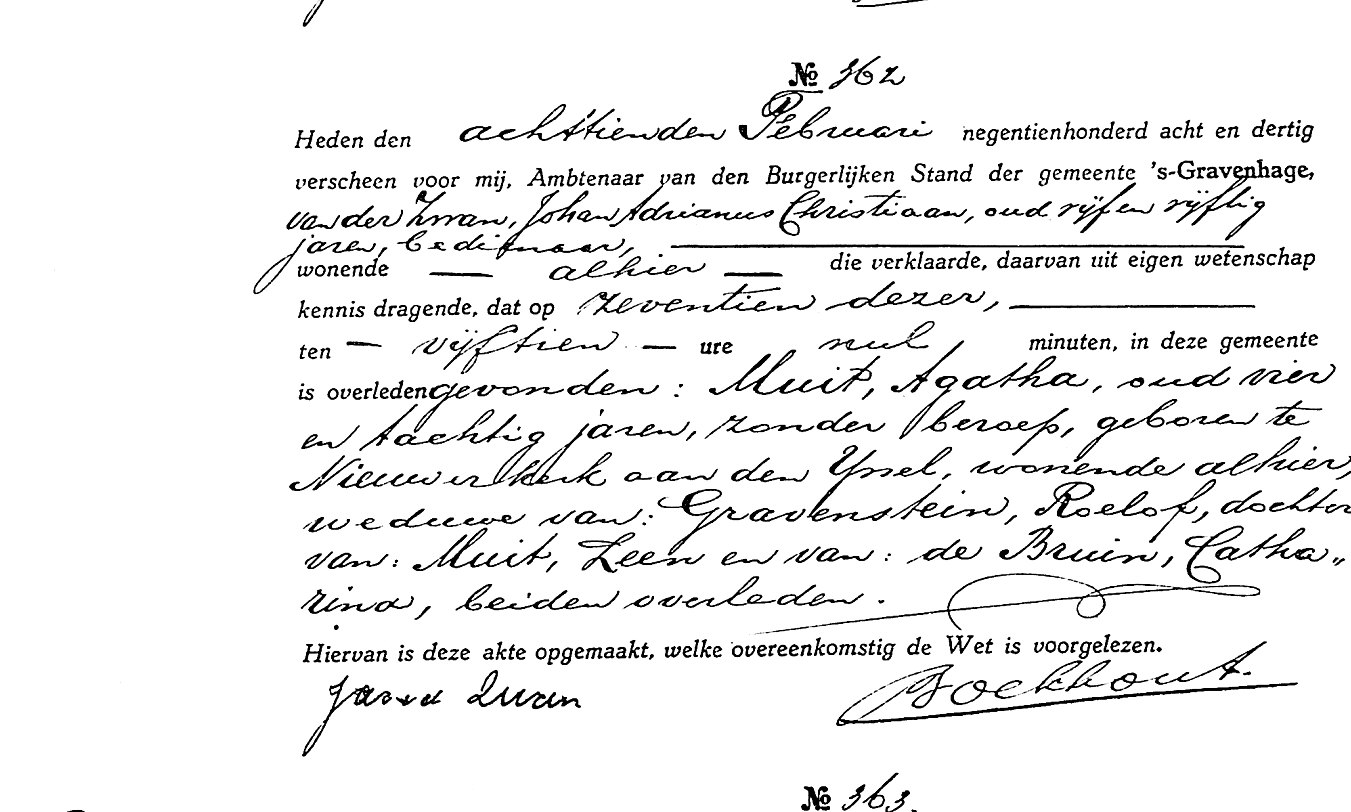 № 362
Heden den achttienden Februari negentienhonderd acht en dertig
verscheen voor mij, Ambtenaar van den Burgerlijken Stand der gemeente 's-Gravenhage,
van der Zwan, Johan Adrianus Christiaan, oud vijf en vijftig
jaren, bedienaar,
wonende — alhier — die verklaarde, daarvan uit eigen wetenschap
kennis dragende, dat op zeventien dezer,
ten — vijftien — ure nul, minuten, in deze gemeente
is overleden gevonden: Muit, Agatha, oud vier
en tachtig jaren, zonder beroep, geboren te
Nieuwerkerk aan den Yssel, wonende alhier,
weduwe van: Gravenstein, Roelof, dochter
van: Muit, Leen en van: de Bruin, Catha„
rina, beiden overleden.
Hiervan is deze akte opgemaakt, welke overeenkomstig de Wet is voorgelezen.
Zwan Boekhout.
№ 363.